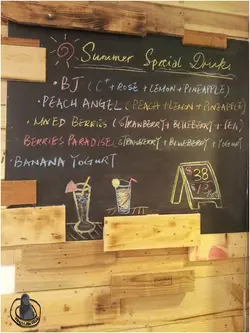 Summer Special Drinks
• BJ (C+ + ROSE + LEMON + PINEAPPLE)
• PEACH ANGEL (PEACH + LEMON + PINEAPPLE)
• MIXED BERRIES (STRAWBERRY + BLUEBERRY + TEA)
• BERRIES PARADISE (STRAWBERRY + BLUEBERRY + YOGURT
• BANANA YOGURT
$38